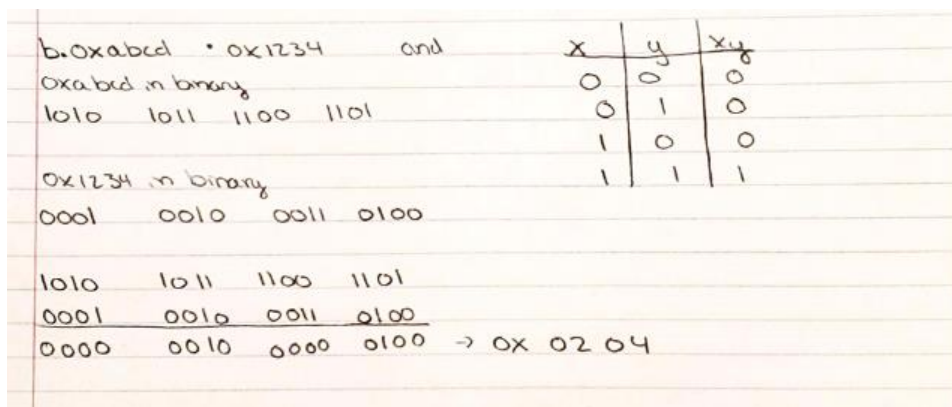 b. 0xabcd • 0x1234 and
0xabcd in binary
1010 1011 1100 1101
0x1234 in binary
0001 0010 0011 0100
1010 1011 1100 1101
0001 0010 0011 0100
0000 0010 0000 0100 → 0x 0204
x y xy
0 0 0
0 1 0
1 0 0
1 1 1